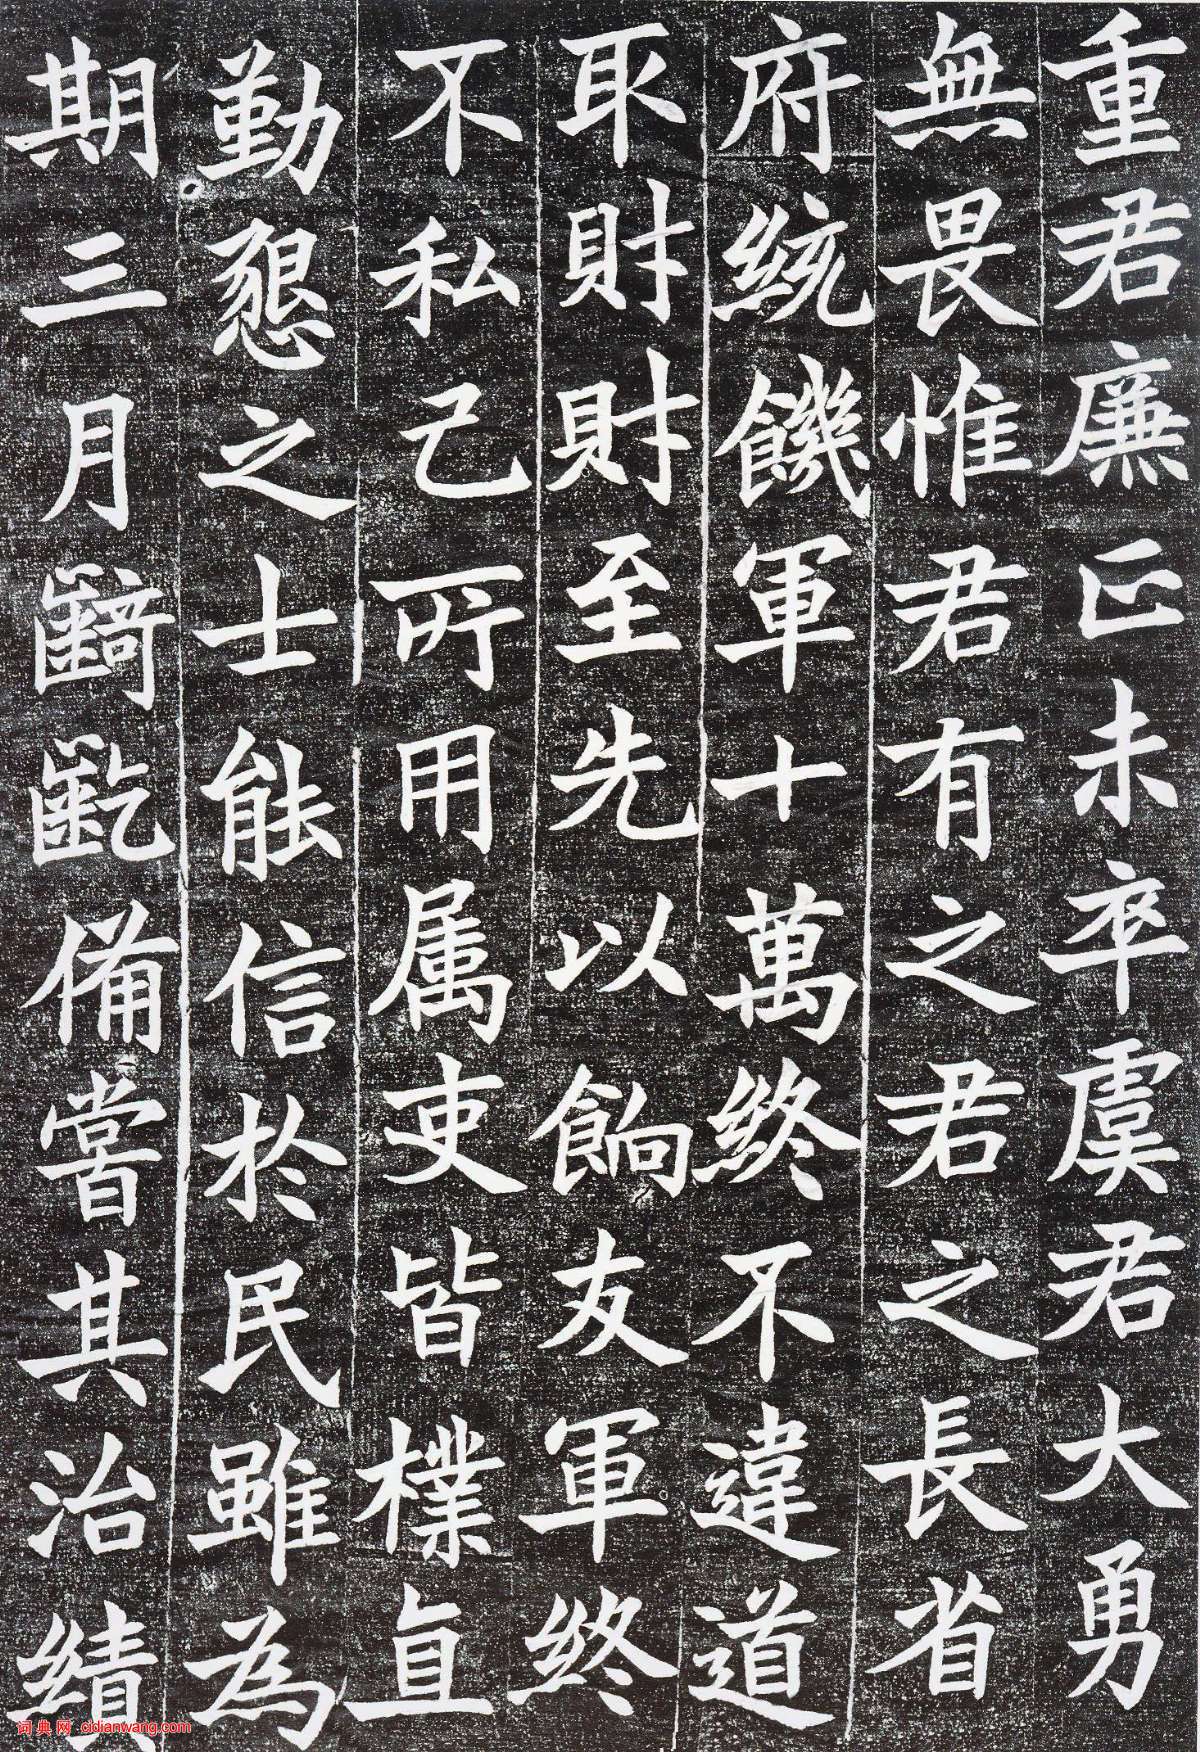 重君廉正未卒虞君大勇
無畏惟君有之君之長省
府統饑軍十萬終不違道
取財財至先以餉友軍終
不私己所用属吏皆樸直
勤懇之士能信於民雖為
期三月齮齕備嘗其治績
词典网 cidianwang.com